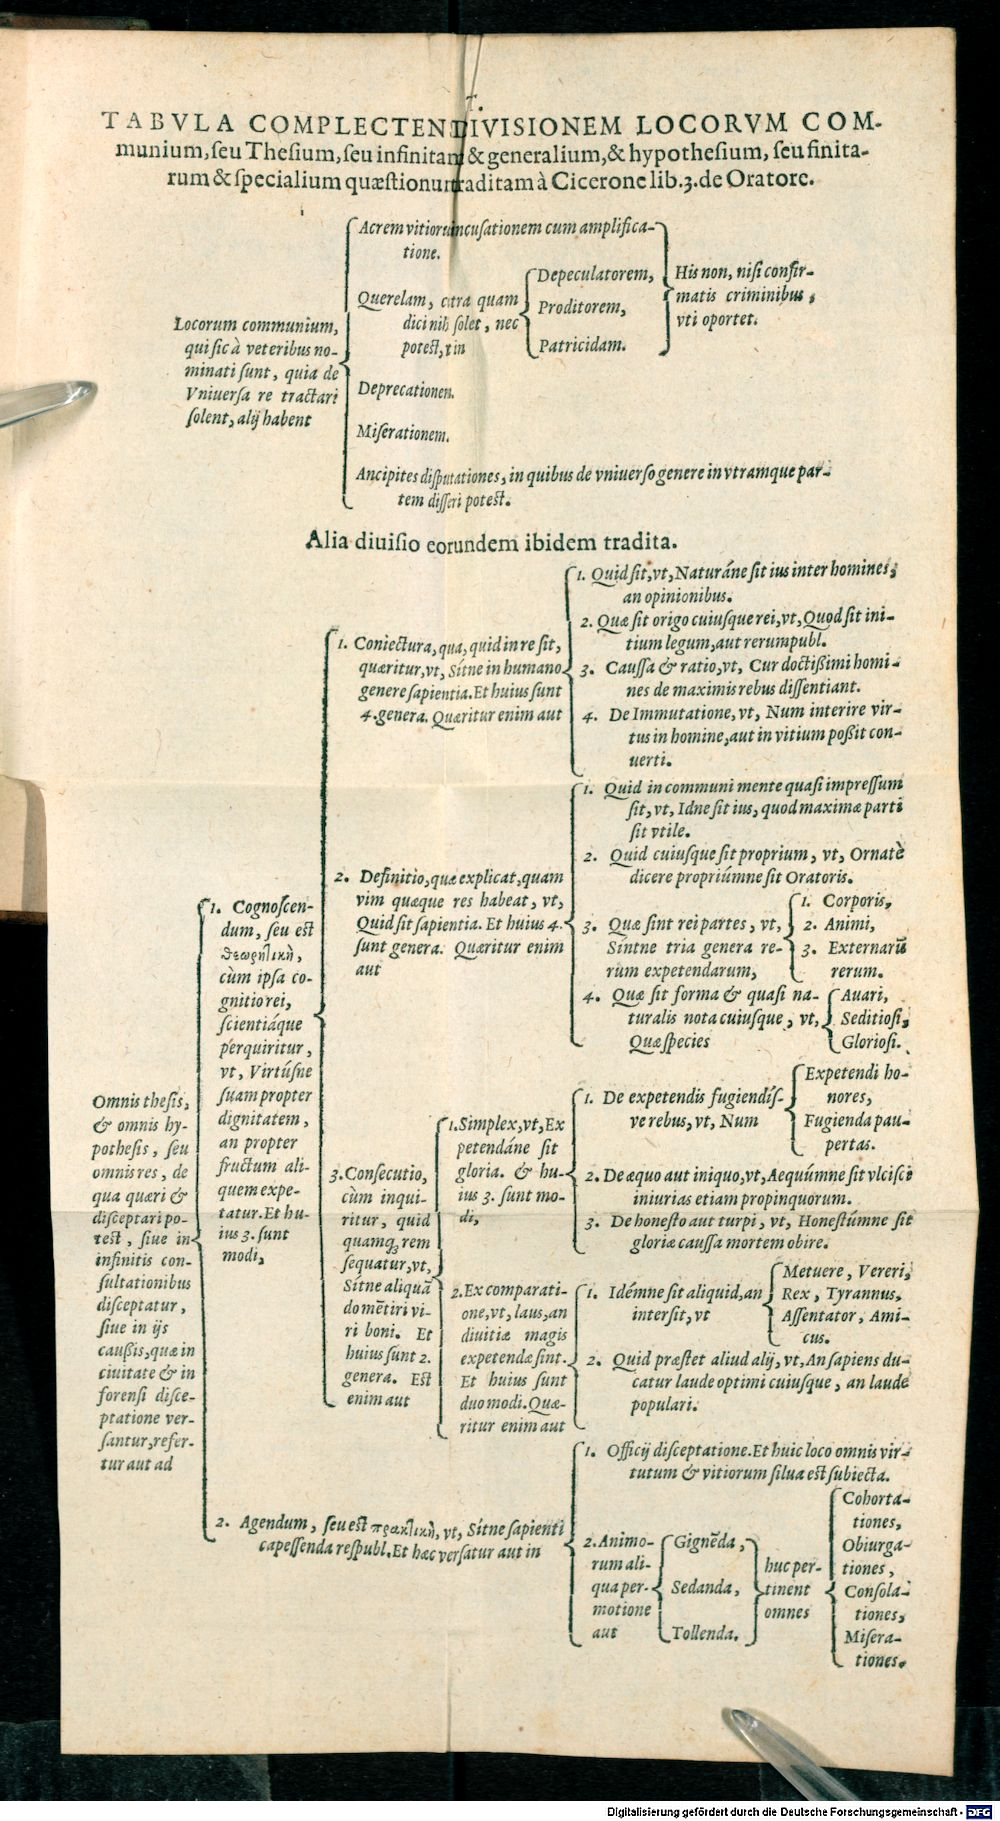 T.
TABVLA COMPLECTENDIVISIONEM LOCORVM COM-
munium, ſeu Theſium, ſeu infinitam & generalium, & hypotheſium, ſeu finita-
rum & ſpecialium quæſtionum traditam à Cicerone lib. 3. de Oratore.
Locorum communium,
qui ſic à veteribus no-
minati ſunt, quia de
Vniuerſa re tractari
ſolent, alij habent
Acrem vitiorum incuſationem cum amplifica-
tione.
Querelam, citra quam
dici nihil ſolet, nec
poteſt, in
Depeculatorem,
Proditorem,
Patricidam.
His non, niſi confir-
matis criminibus,
vti oportet.
Deprecationem.
Miſerationem.
Ancipites diſputationes, in quibus de vniuerſo genere in vtramque par-
tem diſſeri poteſt.
Alia diuiſio eorundem ibidem tradita.
Omnis theſis,
& omnis hy-
potheſis, ſeu
omnis res, de
qua quæri &
diſceptari po-
teſt, ſiue in
infinitis con-
ſultationibus
diſceptatur,
ſiue in ijs
cauſsis, quæ in
ciuitate & in
forenſi diſce-
ptatione ver-
ſantur, refer-
tur aut ad
1. Cognoſcen-
dum, ſeu eſt
θεωρητικὴ,
cùm ipſa co-
gnitio rei,
ſcientiáque
perquiritur,
vt, Virtúſne
ſuam propter
dignitatem,
an propter
fructum ali-
quem expe-
tatur. Et hu-
ius 3. ſunt
modi,
1. Coniectura, qua, quid in re ſit,
quæritur, vt, Sítne in humano
genere ſapientia. Et huius ſunt
4. genera. Quæritur enim aut
1. Quid ſit, vt, Naturáne ſit ius inter homines,
an opinionibus.
2. Quæ ſit origo cuiuſque rei, vt, Quod ſit ini-
tium legum, aut rerumpubl.
3. Cauſſa & ratio, vt, Cur doctiſsimi homi-
nes de maximis rebus diſſentiant.
4. De Immutatione, vt, Num interire vir-
tus in homine, aut in vitium poſsit con-
uerti.
2. Definitio, quæ explicat, quam
vim quæque res habeat, vt,
Quid ſit ſapientia. Et huius 4.
ſunt genera. Quæritur enim
aut
1. Quid in communi mente quaſi impreſſum
ſit, vt, Idne ſit ius, quod maximæ parti
ſit vtile.
2. Quid cuiuſque ſit proprium, vt, Ornatè
dicere propriúmne ſit Oratoris.
3. Quæ ſint rei partes, vt,
Síntne tria genera re-
rum expetendarum,
1. Corporis,
2. Animi,
3. Externarū
rerum.
4. Quæ ſit forma & quaſi na-
turalis nota cuiuſque, vt,
Quæ ſpecies
Auari,
Seditioſi,
Glorioſi.
3. Conſecutio,
cùm inqui-
ritur, quid
quamq; rem
ſequatur, vt,
Sítne aliquā
do mētiri vi-
ri boni. Et
huius ſunt 2.
genera. Eſt
enim aut
1. Simplex, vt, Ex
petendáne ſit
gloria. & hu-
ius 3. ſunt mo-
di,
1. De expetendis fugiendíſ-
ve rebus, vt, Num
Expetendi ho-
nores,
Fugienda pau-
pertas.
2. De æquo aut iniquo, vt, Aequúmne ſit vlciſci
iniurias etiam propinquorum.
3. De honeſto aut turpi, vt, Honeſtúmne ſit
gloriæ cauſſa mortem obire.
2. Ex comparati-
one, vt, laus, an
diuitiæ magis
expetendæ ſint.
Et huius ſunt
duo modi. Quæ-
ritur enim aut
1. Idémne ſit aliquid, an
interſit, vt
Metuere, Vereri,
Rex, Tyrannus,
Aſſentator, Ami-
cus.
2. Quid præſtet aliud alij, vt, An ſapiens du-
catur laude optimi cuiuſque, an laude
populari.
2. Agendum, ſeu eſt πρακτικὴ, vt, Sítne ſapienti
capeſſenda reſpubl. Et hæc verſatur aut in
1. Officij diſceptatione. Et huic loco omnis vir-
tutum & vitiorum ſilua eſt ſubiecta.
2. Animo-
rum ali-
qua per-
motione
aut
Gignēda,
Sedanda,
Tollenda.
huc per-
tinent
omnes
Cohorta-
tiones,
Obiurga-
tiones,
Conſola-
tiones,
Miſera-
tiones.
Digitalisierung gefördert durch die Deutsche Forschungsgemeinschaft - DFG